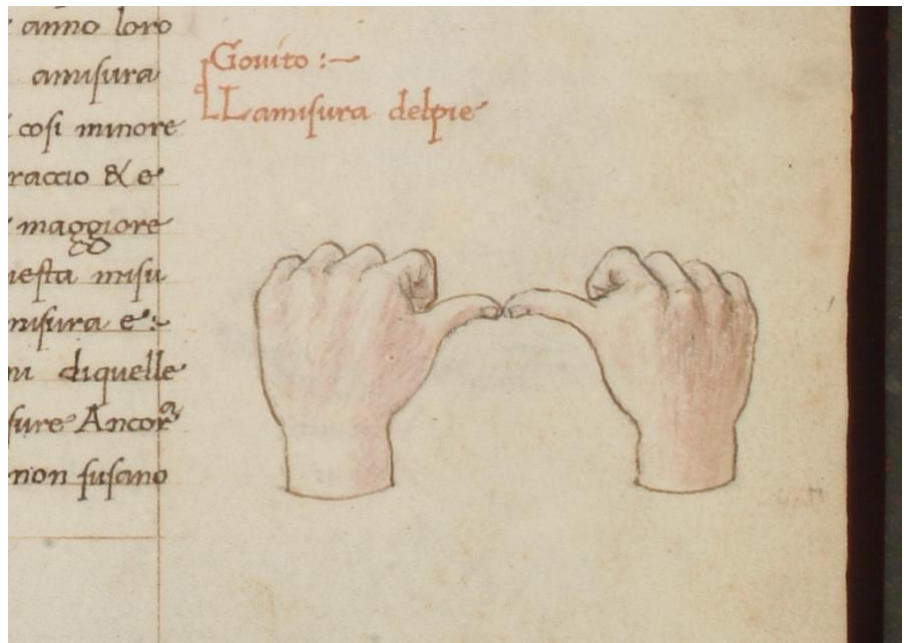 anno loro
amisura
cosi minore
raccio & e
maggiore
iesta misu
misura e :~
diquelle
sure Ancora
non susano
Govito :~
La misura delpie